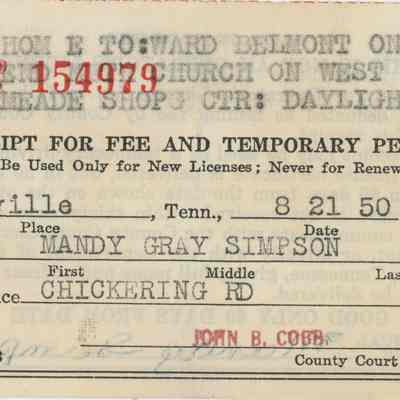 HOM E TO:WARD BELMONT ON
154979
CHURCH ON WEST
MEADE SHOPG CTR: DAYLIGH
IPT FOR FEE AND TEMPORARY PE
Be Used Only for New Licenses; Never for Renew
ville, Tenn., 8 21 50
Place Date
MANDY GRAY SIMPSON
First Middle Las
ce CHICKERING RD
JOHN B. COBB
County Court